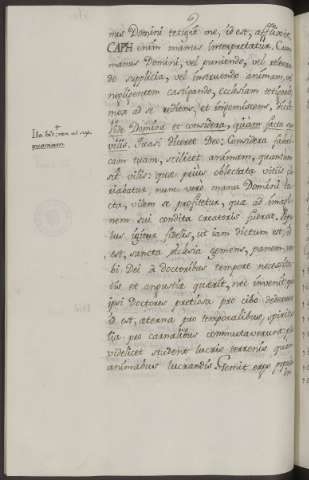 nus Domini tetigit me, id est, afflixit.
CAPH enim manus interpretatur. Cum
manus Domini, vel puniendo, vel
de supplicia, vel instruendo animam, vel
negligentem castigando, ecclesiam
mea ad se rediens, et
vide Domine et considera, quoniam facta sum
vilis. Quasi diceret Deo: Considera fabri-
cam tuam, scilicet animam, quam
sit vilis: quæ prius oblectata vitiis
nunc vero manu Domini ta-
cta, vilem se profitetur, quæ ad imagi-
nem sui condita creatoris fuerat.
bus fidelis, ut iam dictum est, id
est, sancta Ecclesia gemens, panem ver-
bi Dei a doctoribus tempore necessita-
tis et angustiæ quærit, nec invenit quia
ipsi Doctores pretiosa pro cibo dederunt
id est, æterna pro temporalibus, spiritu-
alia pro carnalibus commutaverunt
videlicet student lucris terrenis quam
animabus lucrandis. Gemit ergo